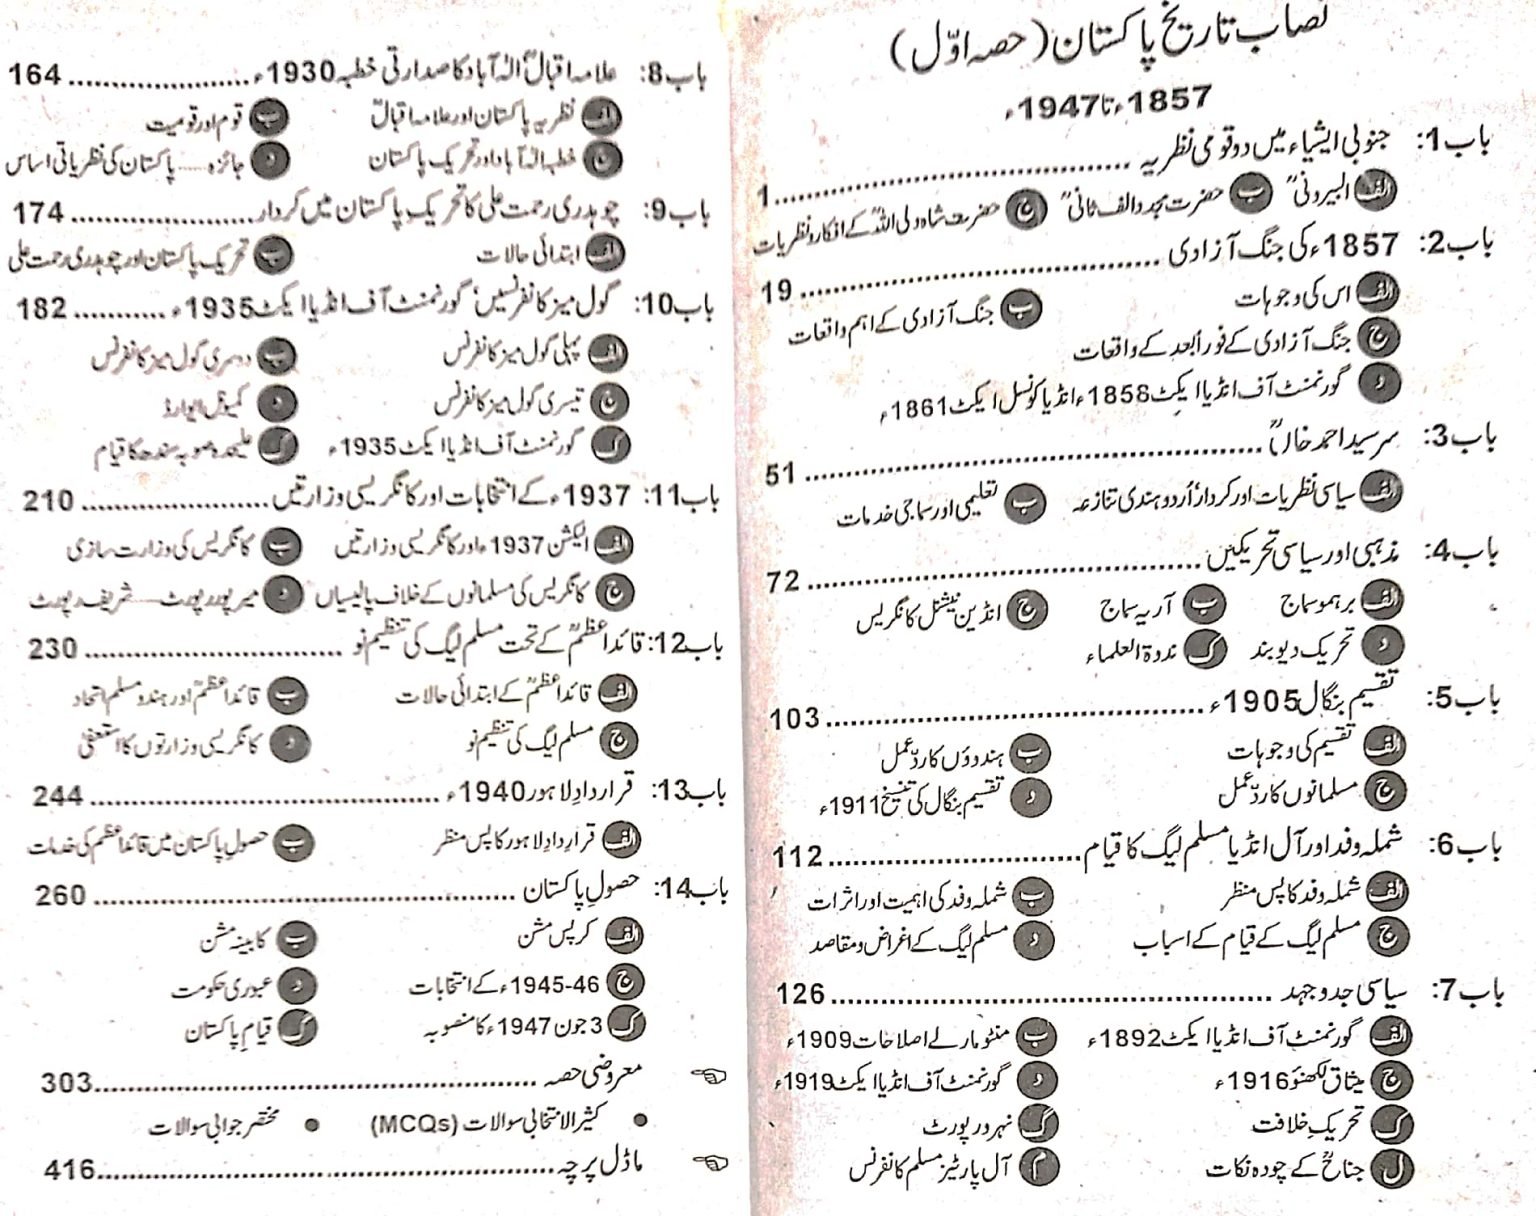 نصاب تاریخ پاکستان (حصہ اوّل)
1857ء تا 1947ء
باب1: جنوبی ایشیاء میں دو قومی نظریہ ........ 1
الف البیرونیؒ ب حضرت مجدد الف ثانیؒ ج حضرت شاہ ولی اللہؒ کے افکار و نظریات
باب2: 1857ء کی جنگ آزادی ........ 19
الف اس کی وجوہات ب جنگ آزادی کے اہم واقعات
ج جنگ آزادی کے فوراً بعد کے واقعات
د گورنمنٹ آف انڈیا ایکٹ 1858ء انڈیا کونسل ایکٹ 1861ء
باب3: سرسید احمد خاںؒ ........ 51
الف سیاسی نظریات اور کردار' اُردو ہندی تنازعہ ب تعلیمی اور سماجی خدمات
باب4: مذہبی اور سیاسی تحریکیں ........ 72
الف برہمو سماج ب آریہ سماج ج انڈین نیشنل کانگریس
د تحریک دیوبند ک ندوۃ العلماء
باب5: تقسیم بنگال 1905ء ........ 103
الف تقسیم کی وجوہات ب ہندوؤں کا ردّعمل
ج مسلمانوں کا ردّعمل د تقسیم بنگال کی تنسیخ 1911ء
باب6: شملہ وفد اور آل انڈیا مسلم لیگ کا قیام ........ 112
الف شملہ وفد کا پس منظر ب شملہ وفد کی اہمیت اور اثرات
ج مسلم لیگ کے قیام کے اسباب د مسلم لیگ کے اغراض و مقاصد
باب7: سیاسی جدوجہد ........ 126
الف گورنمنٹ آف انڈیا ایکٹ 1892ء ب منٹو مارلے اصلاحات 1909ء
ج میثاق لکھنؤ 1916ء د گورنمنٹ آف انڈیا ایکٹ 1919ء
ک تحریکِ خلافت گ نہرو رپورٹ
ل جناحؒ کے چودہ نکات م آل پارٹیز مسلم کانفرنس
باب8: علامہ اقبالؒ الٰہ آباد کا صدارتی خطبہ 1930ء ........ 164
الف نظریہ پاکستان اور علامہ اقبالؒ ب قوم اور قومیت
ج خطبہ الٰہ آباد اور تحریک پاکستان د جائزہ ..... پاکستان کی نظریاتی اساس
باب9: چوہدری رحمت علی کا تحریک پاکستان میں کردار ........ 174
الف ابتدائی حالات ب تحریک پاکستان اور چوہدری رحمت علی
باب10: گول میز کانفرنسیں' گورنمنٹ آف انڈیا ایکٹ 1935ء ........ 182
الف پہلی گول میز کانفرنس ب دوسری گول میز کانفرنس
ج تیسری گول میز کانفرنس د کمیونل ایوارڈ
ک گورنمنٹ آف انڈیا ایکٹ 1935ء گ علیحدہ صوبہ سندھ کا قیام
باب11: 1937ء کے انتخابات اور کانگریسی وزارتیں ........ 210
الف الیکشن 1937ء اور کانگریسی وزارتیں ب کانگریس کی وزارت سازی
ج کانگریس کی مسلمانوں کے خلاف پالیسیاں د میر پور رپورٹ ..... شریف رپورٹ
باب12: قائداعظمؒ کے تحت مسلم لیگ کی تنظیم نو ........ 230
الف قائداعظمؒ کے ابتدائی حالات ب قائداعظمؒ اور ہندو مسلم اتحاد
ج مسلم لیگ کی تنظیم نو د کانگریسی وزارتوں کا استعفیٰ
باب13: قراردادِ لاہور 1940ء ........ 244
الف قراردادِ لاہور کا پس منظر ب حصولِ پاکستان میں قائداعظم کی خدمات
باب14: حصولِ پاکستان ........ 260
الف کرپس مشن ب کابینہ مشن
ج 1945-46ء کے انتخابات د عبوری حکومت
ک 3 جون 1947ء کا منصوبہ گ قیامِ پاکستان
معروضی حصہ ........ 303
• کثیر الانتخابی سوالات (MCQs) • مختصر جوابی سوالات
ماڈل پرچہ ........ 416